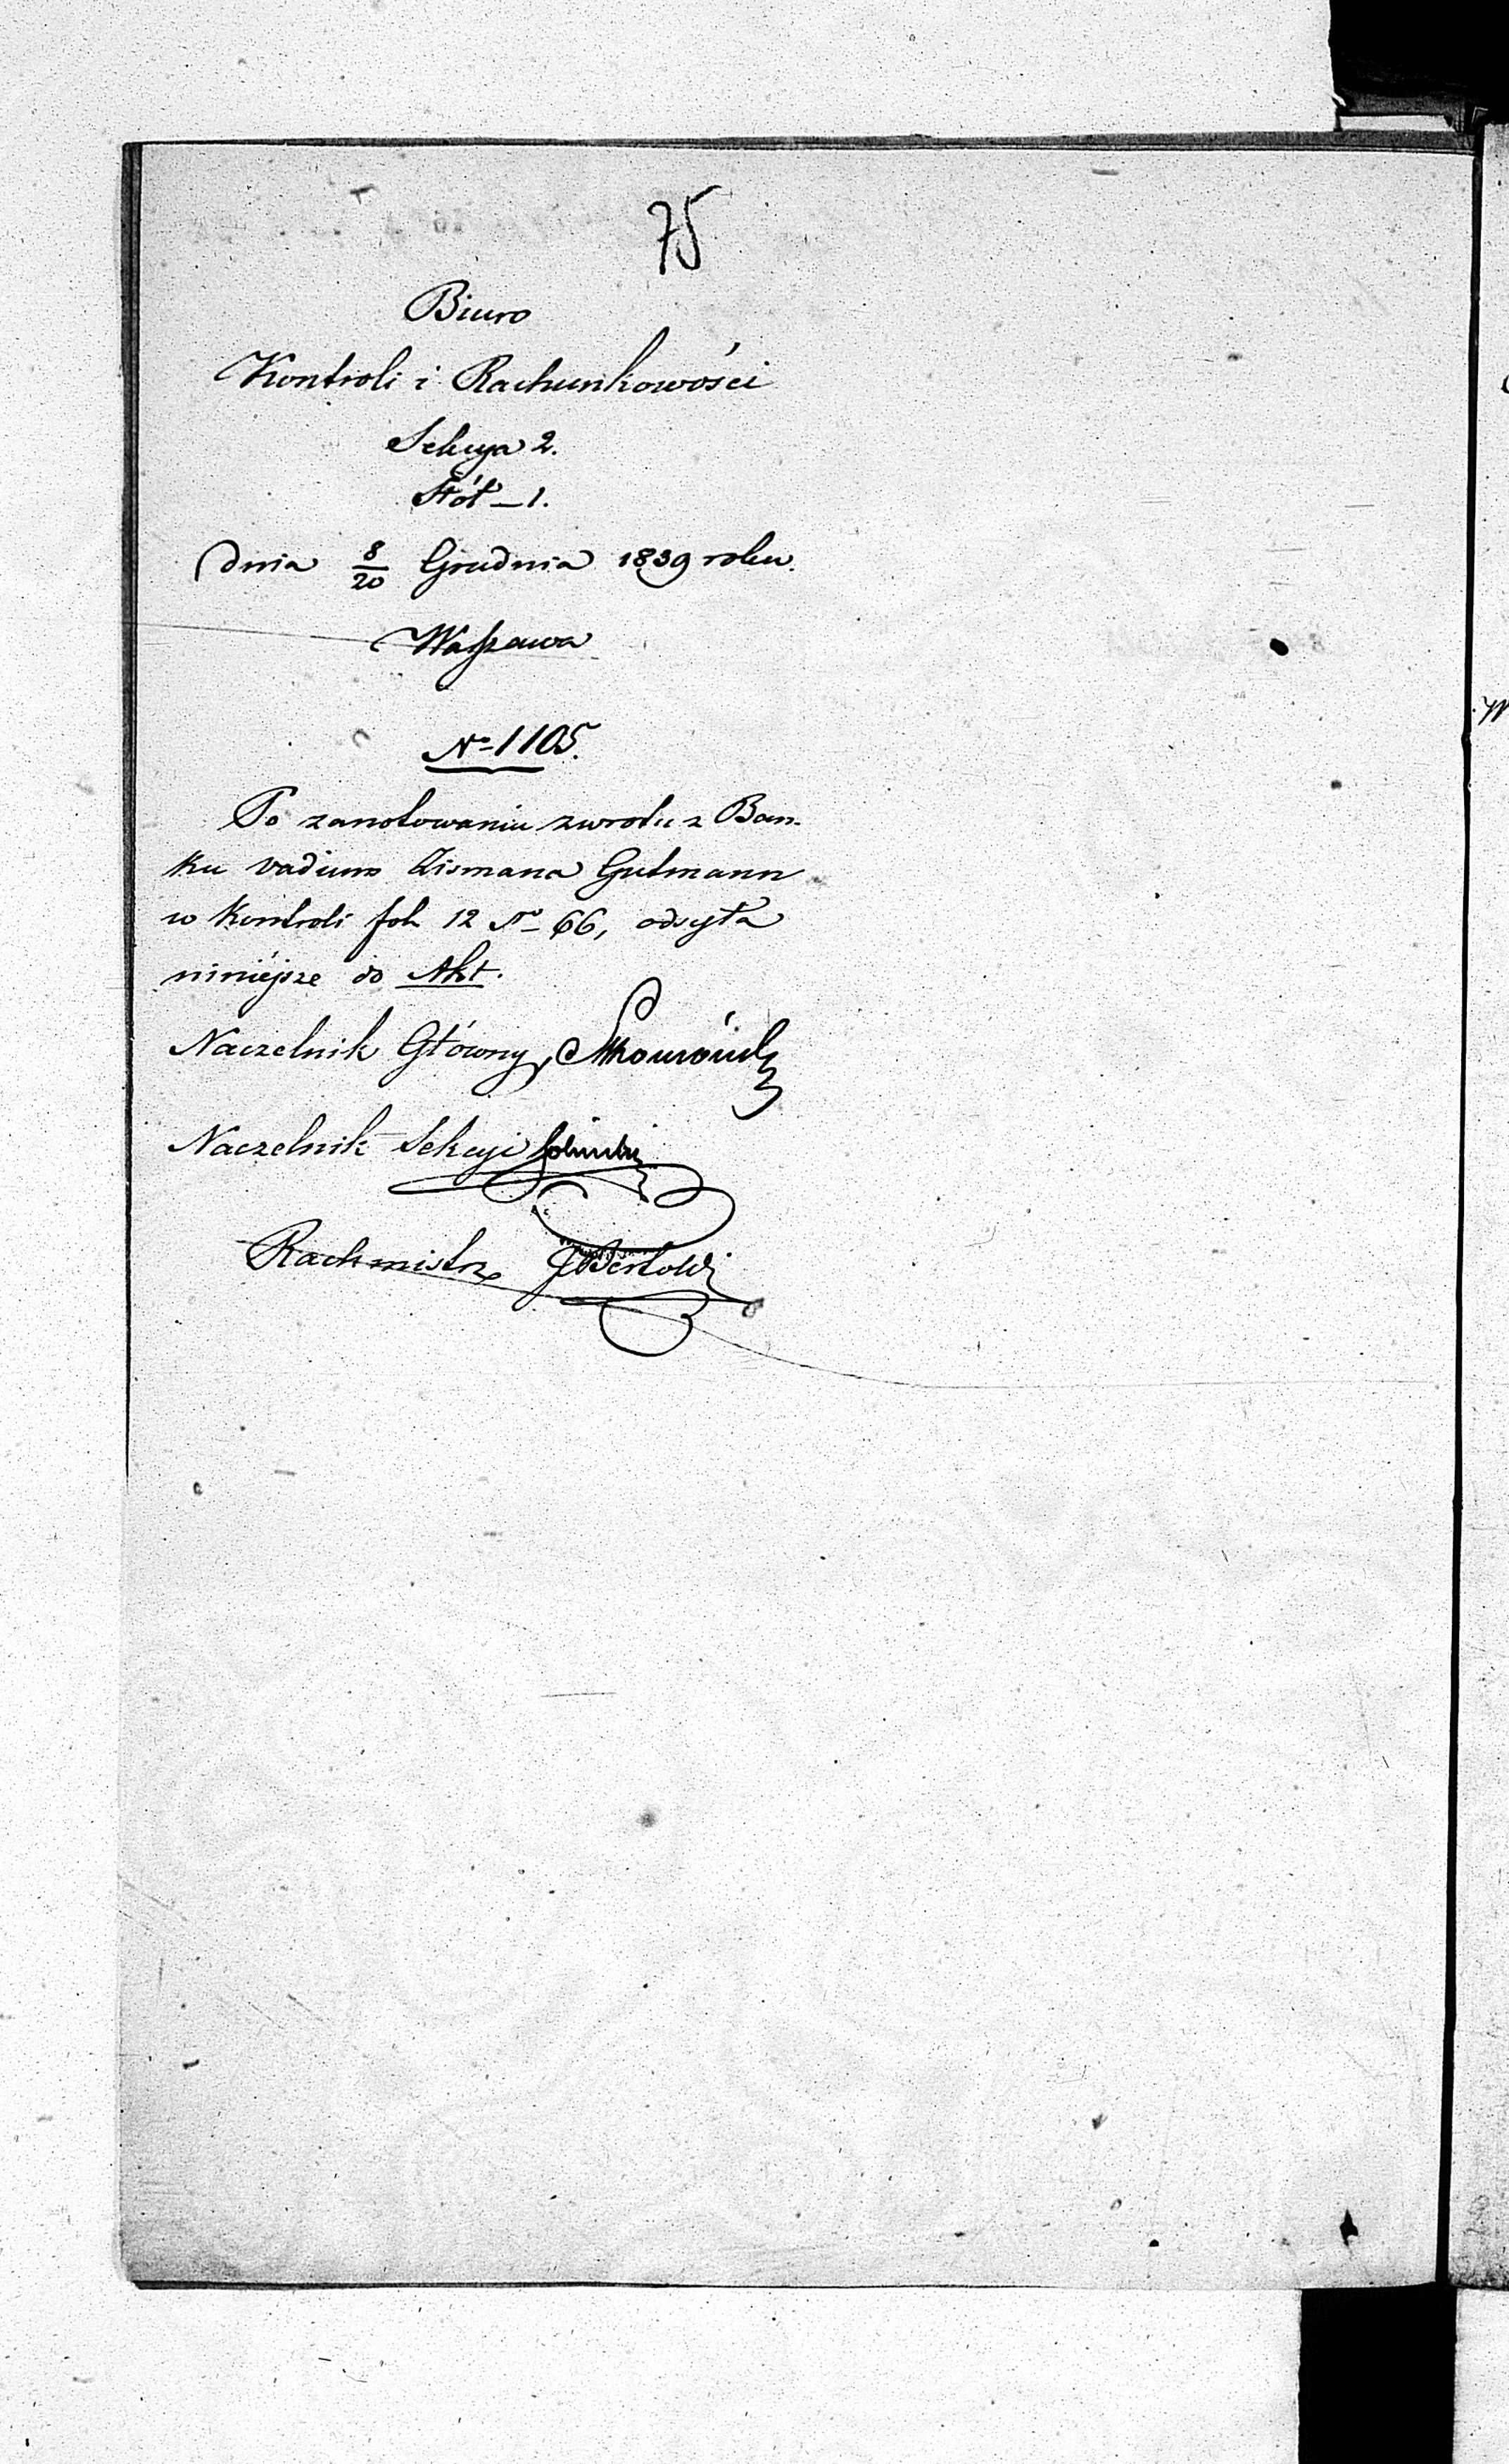 75
Biuro
Kontroli i Rachunkowości
Sekcya 2.
Stół — 1.
dnia 8/20 Grudnia 1839 roku.
Warszawa
No 1105.
Po zanotowaniu zwrotu z Ban-
ku vadium Zismana Gutmann
w Kontroli fol. 12 No 66, odsyła
niniéjsze do Akt.
Naczelnik Główny,
Naczelnik Sekcyi
Rachmistrz